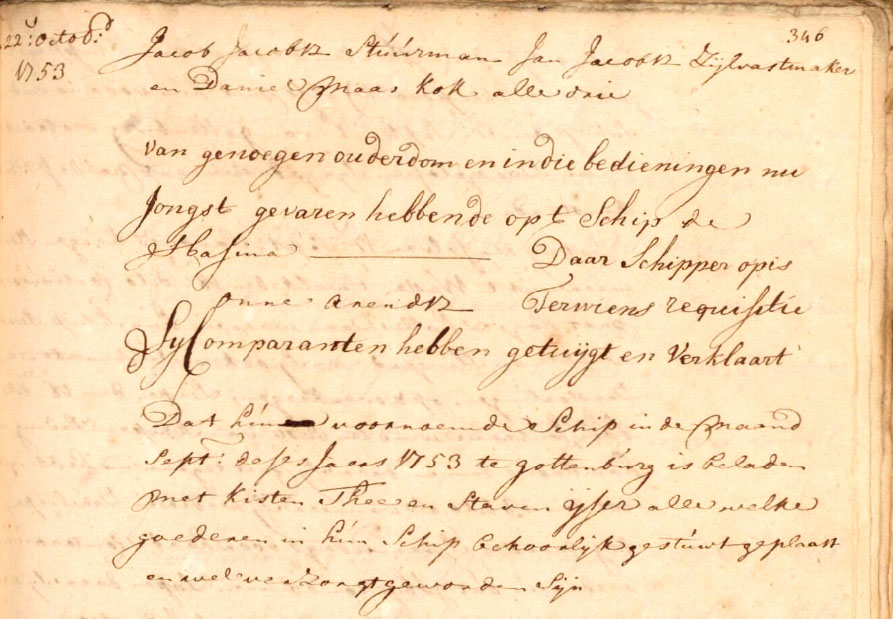 346
22: octob:
1753
Jacob Jacobsz Stuurman Jan Jacobsz Zijlvastmaker
en Daniel Maas Kok alle drie
van genoegen ouderdom en in die bedieningen nu
Jongst gevaren hebbende opt Schip de
Daar Schipper op is
onne arendsz Terwiens requisitie
Sy Comparanten hebben getuijgt en Verklaart
Dat hún voornoemde Schip in de Maand
Sept: deses Jaars 1753 te gottenbúrg is beladen
met kisten Thee en Staven ijser alle welke
goederen in hún Schip behoorlijk gestúwt geplaatst
en wel verzorgt geworden Sijn